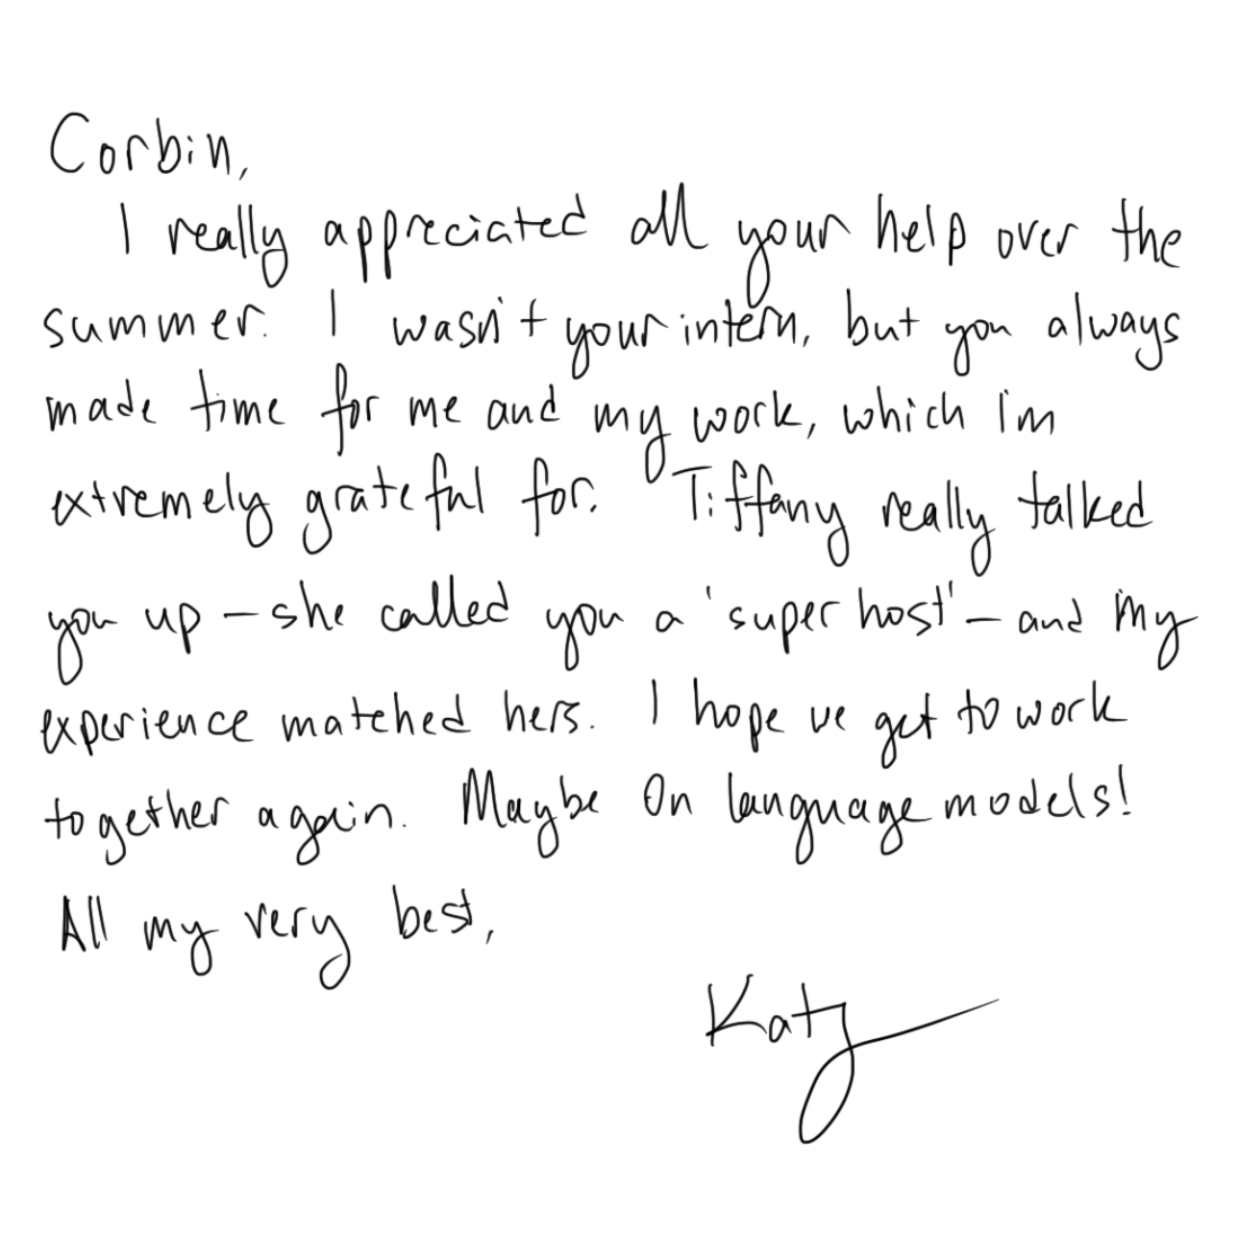 Corbin,
I really appreciated all your help over the
summer. I wasn't your intern, but you always
made time for me and my work, which I'm
extremely grateful for. Tiffany really talked
you up - she called you a 'super host' - and my
experience matched hers. I hope we get to work
together again. Maybe on language models!
All my very best,
Katy